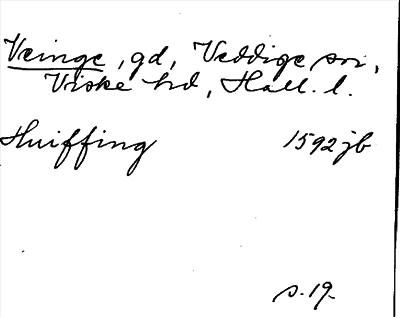 Veinge, gd, Veddige sn,
Viske hd, Hall. l.
Huiffing 1592 jb
s. 19.